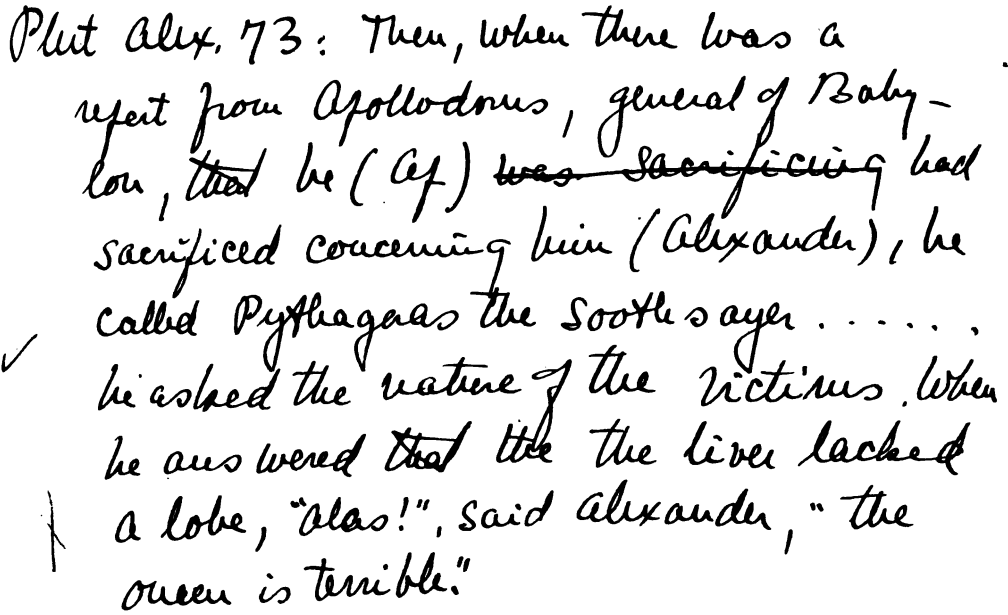 Plut Alex. 73: Then, when there was a
report from Apollodorus, general of Baby-
lon, that he (Ap) was sacrificing had
sacrificed concerning him (Alexander), he
called Pythagoras the soothsayer . . . . . .
he asked the nature of the victims. When
he answered that the the liver lacked
a lobe, "alas!", said Alexander, "the
omen is terrible."